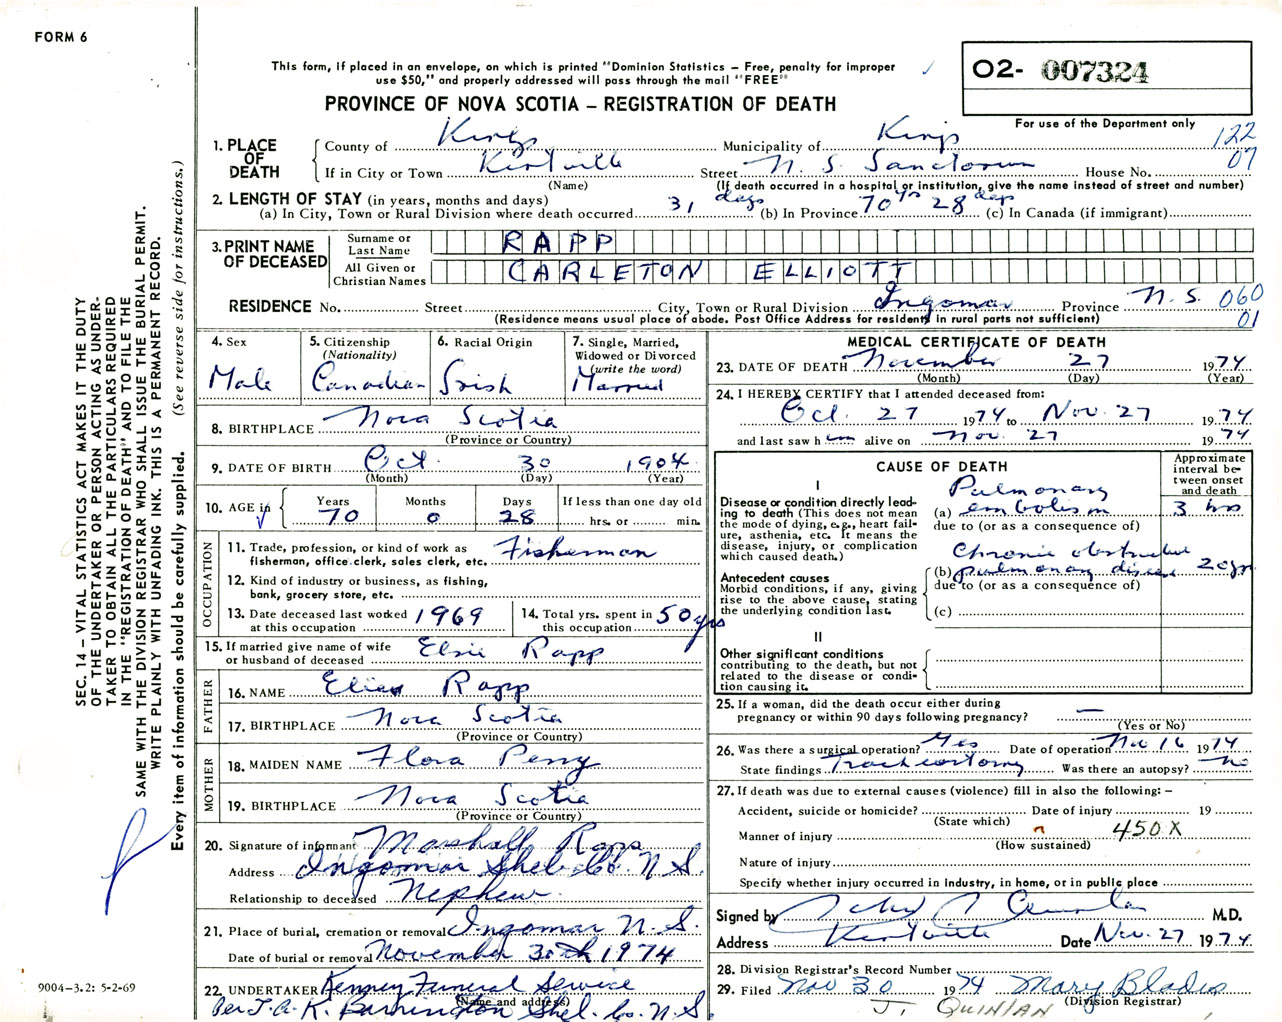 FORM 6
This form, if placed in an envelope, on which is printed "Dominion Statistics – Free, penalty for improper
use $50," and properly addressed will pass through the mail "FREE"
O2- 007324
PROVINCE OF NOVA SCOTIA – REGISTRATION OF DEATH
For use of the Department only
122
07
1. PLACE OF DEATH County of Kings Municipality of Kings
If in City or Town Kentville Street N. S. Sanatorium House No.
(Name) (If death occurred in a hospital or institution, give the name instead of street and number)
2. LENGTH OF STAY (in years, months and days)
(a) In City, Town or Rural Division where death occurred 31 days (b) In Province 70 yrs 28 days (c) In Canada (if immigrant)
3. PRINT NAME OF DECEASED
Surname or Last Name RAPP
All Given or Christian Names CARLETON ELLIOTT
RESIDENCE No. Street City, Town or Rural Division Ingomar Province N. S. 060
01
(Residence means usual place of abode. Post Office Address for residents in rural parts not sufficient)
4. Sex Male
5. Citizenship (Nationality) Canadian
6. Racial Origin Irish
7. Single, Married, Widowed or Divorced (write the word) Married
8. BIRTHPLACE Nova Scotia
(Province or Country)
9. DATE OF BIRTH Oct. 30 1904
(Month) (Day) (Year)
10. AGE in Years 70 Months 0 Days 28 If less than one day old hrs. or min.
OCCUPATION
11. Trade, profession, or kind of work as fisherman, office clerk, sales clerk, etc. Fisherman
12. Kind of industry or business, as fishing, bank, grocery store, etc.
13. Date deceased last worked at this occupation 1969
14. Total yrs. spent in this occupation 50 yrs
15. If married give name of wife or husband of deceased Elsie Rapp
FATHER
16. NAME Rapp
17. BIRTHPLACE Nova Scotia
(Province or Country)
MOTHER
18. MAIDEN NAME Flora Perry
19. BIRTHPLACE Nova Scotia
(Province or Country)
20. Signature of informant Marshall Rapp
Address Ingomar Shel. Co. N. S.
Relationship to deceased Nephew
21. Place of burial, cremation or removal Ingomar N. S.
Date of burial or removal November 30th 1974
22. UNDERTAKER Kenney Funeral Service
(Name and address)
Per T.A. K. Barrington Shel. Co. N. S.
MEDICAL CERTIFICATE OF DEATH
23. DATE OF DEATH November 27 1974
(Month) (Day) (Year)
24. I HEREBY CERTIFY that I attended deceased from:
Oct. 27 1974 to Nov. 27 1974
and last saw him alive on Nov. 27 1974
CAUSE OF DEATH
Approximate interval between onset and death
I
Disease or condition directly leading to death (This does not mean the mode of dying, e.g., heart failure, asthenia, etc. It means the disease, injury, or complication which caused death.)
(a) Pulmonary embolism 3 hrs
due to (or as a consequence of)
Antecedent causes
Morbid conditions, if any, giving rise to the above cause, stating the underlying condition last.
(b) Chronic obstructive pulmonary disease
due to (or as a consequence of)
(c)
II
Other significant conditions
contributing to the death, but not related to the disease or condition causing it.
25. If a woman, did the death occur either during pregnancy or within 90 days following pregnancy? —
(Yes or No)
26. Was there a surgical operation? Yes Date of operation Nov 16 1974
State findings Tracheostomy Was there an autopsy? No
27. If death was due to external causes (violence) fill in also the following: –
Accident, suicide or homicide? Date of injury 19
(State which)
Manner of injury 450X
(How sustained)
Nature of injury
Specify whether injury occurred in industry, in home, or in public place
Signed by M.D.
Address Kentville Date Nov. 27 1974
28. Division Registrar's Record Number
29. Filed Nov 30 1974 Mary Blades
(Division Registrar)
J. QUINLAN
SEC. 14 – VITAL STATISTICS ACT MAKES IT THE DUTY
OF THE UNDERTAKER OR PERSON ACTING AS UNDER-
TAKER TO OBTAIN ALL THE PARTICULARS REQUIRED
IN THE "REGISTRATION OF DEATH" AND TO FILE THE
SAME WITH THE DIVISION REGISTRAR WHO SHALL ISSUE THE BURIAL PERMIT.
WRITE PLAINLY WITH UNFADING INK. THIS IS A PERMANENT RECORD.
Every item of information should be carefully supplied. (See reverse side for instructions.)
9004-3.2: 5-2-69